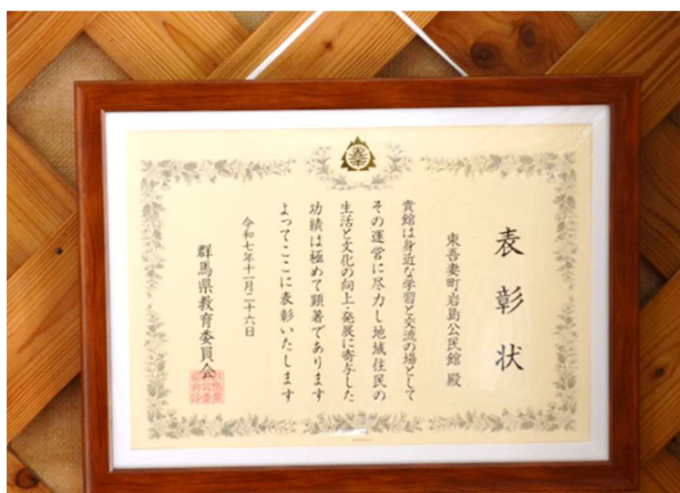 表彰状
東吾妻町岩島公民館 殿
貴館は身近な学習と交流の場として
その運営に尽力し地域住民の
生活と文化の向上・発展に寄与した
功績は極めて顕著であります
よってここに表彰いたします
令和七年十一月二十六日
群馬県教育委員会